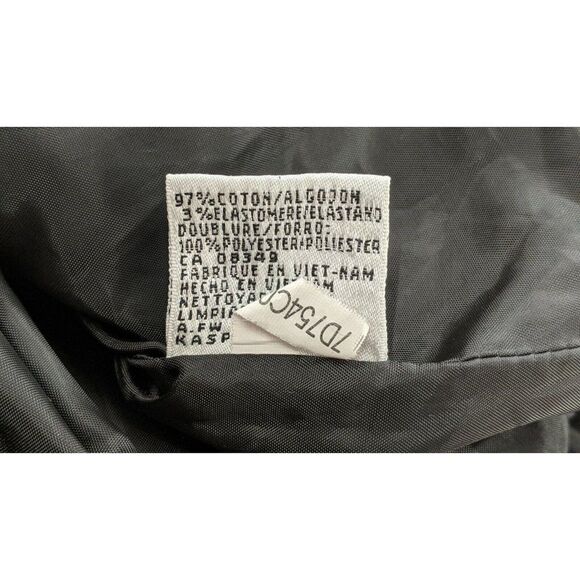 97% COTON/ALGODON
3% ELASTOMERE/ELASTANO
DOUBLURE/FORRO:
100% POLYESTER/POLIESTER
CA 08349
FABRIQUE EN VIET-NAM
HECHO EN VIETNAM
A.FW
KASP
7D754C